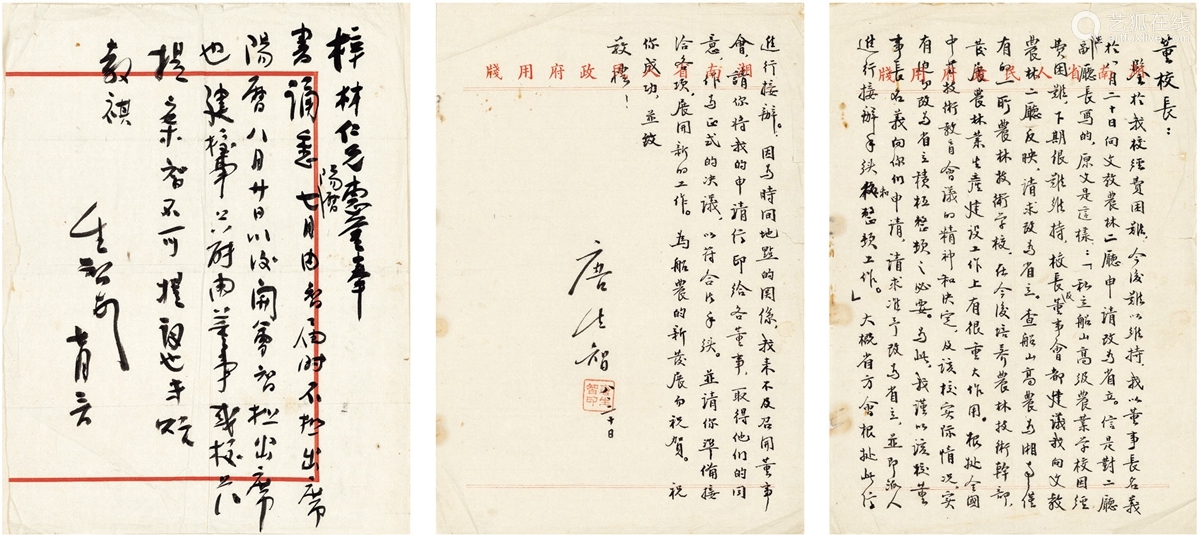 董校長：
鑒於我校經費困難，今後難以維持，我以董事長名義
於八月二十日向文教農林二廳申請改為省立。信是對二廳
副廳長寫的，原文是這樣：「私立船山高級農業學校因經
費困難，下期很難維持，校長及董事會都建議我向文教
農林二廳反映，請求改為省立。查船山高農為湘省僅
有的一所農林技術學校，在今後培養農林技術幹部，
發展農林業生產建設工作上有很重大作用。根據全國
中等技術教育會議的精神和決定，及該校實際情況，實
有把他改為省立積極整頓之必要。為此，我謹以該校董
事長名義向你們申請，請求准予改為省立，並即派人
進行接辦手續和整頓工作。」大概省方會根據此信
湖南省人民政府用牋
進行接辦。因為時間地點的關係，我來不及召開董事
會，請你將我的申請信印給各董事，取得他們的同
意，作為正式的決議，以符合法手續。並請你準備接
洽各項，展開新的工作。為船農的新發展而祝賀。祝
你成功，並致
敬禮！
唐生智
八、二十日
唐生智印
湖南省人民政府用牋
梓材仁兄惠鑒奉
書誦悉七月內智屆時不擬出席
陽曆
陽曆八月廿日以後開會智擬出席
也建校事只許由董事或校方
提案智不可提詞也專覆
敬祺
生智
七月
搜狐在线